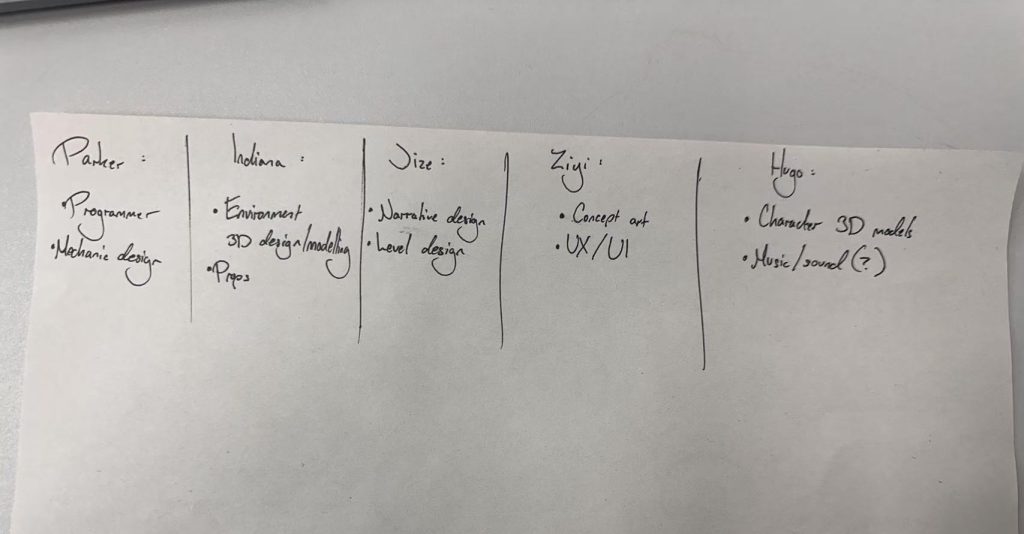 Parker :
• Programmer
• Mechanic design
Indiana :
• Environment
3D design/modelling
• Props
Jize :
• Narrative design
• Level design
Ziyi :
• Concept art
• UX/UI
Hugo :
• Character 3D models
• Music/sound (?)